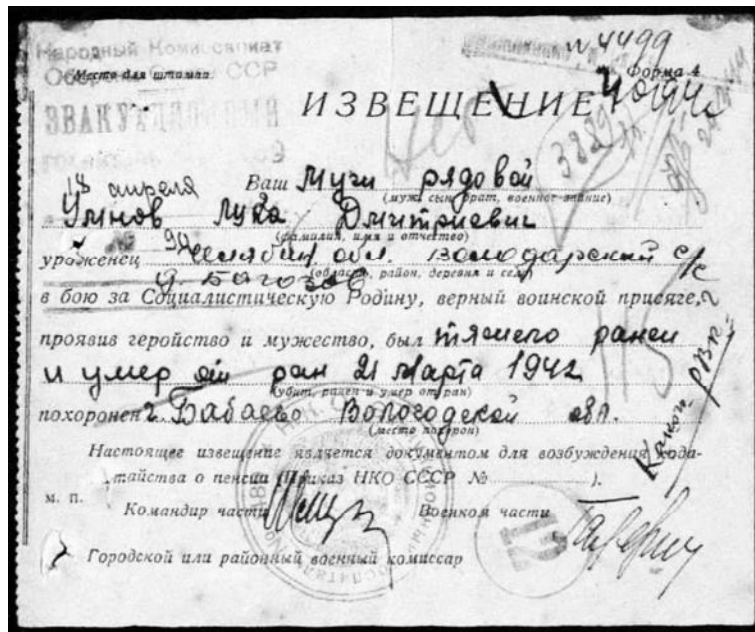 Народный Комиссариат
N 4499
Обороны Союза ССР
Место для штампа
Форма 4
ИЗВЕЩЕНИЕ
3889
18 апреля
Ваш муж рядовой
(муж, сын, брат, военное звание)
Умнов Лука Дмитриевич
(фамилия, имя и отчество)
уроженец Челябин обл. Володарский с/с
(область, район, деревня и село)
в бою за Социалистическую Родину, верный воинской присяге,
проявив геройство и мужество, был тяжело ранен
и умер от ран 21 марта 1942
(убит, ранен и умер от ран)
похоронен г. Бабаево Вологодской обл.
(место похорон)
Какого РВК?
Настоящее извещение является документом для возбуждения хода-
тайства о пенсии (Приказ НКО СССР №        ).
м. п.
Командир части
Военком части
Городской или районный военный комиссар